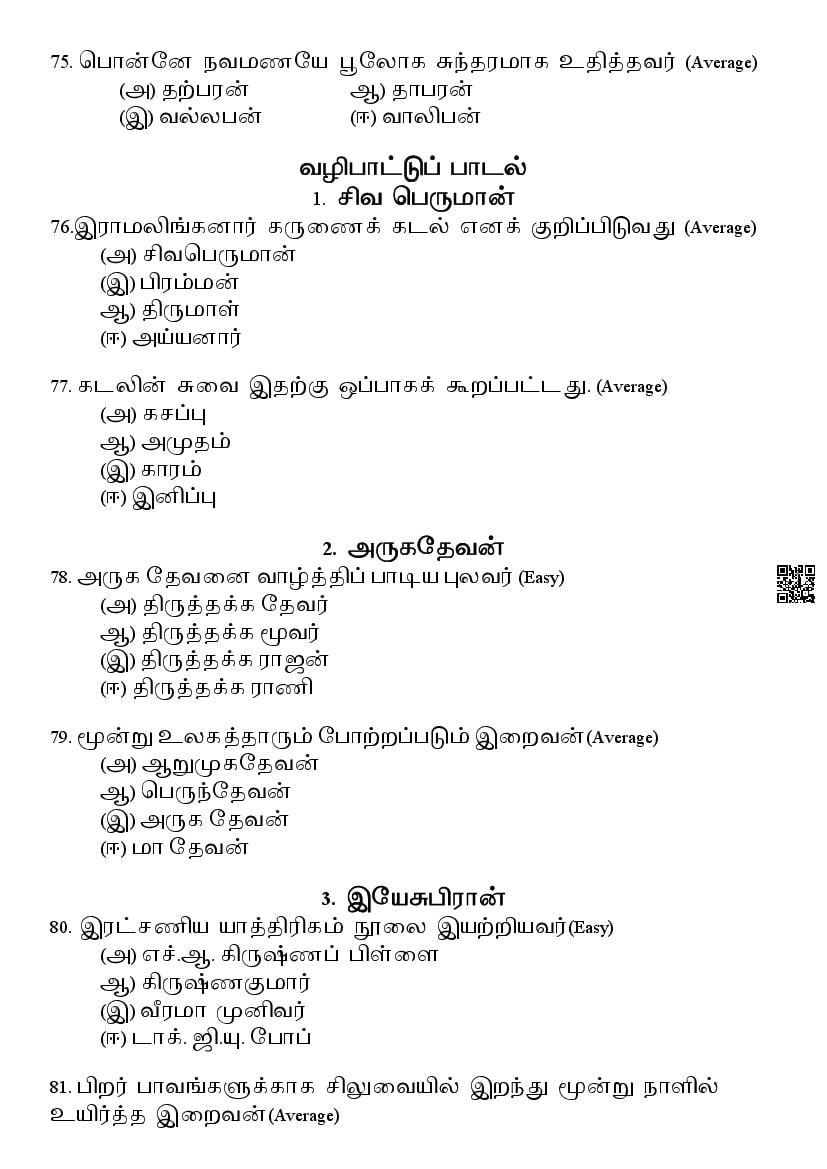 75. பொன்னே நவமணயே பூலோக சுந்தரமாக உதித்தவர் (Average)
(அ) தற்பரன் ஆ) தாபரன்
(இ) வல்லபன் (ஈ) வாலிபன்
வழிபாட்டுப் பாடல்
1. சிவ பெருமான்
76.இராமலிங்கனார் கருணைக் கடல் எனக் குறிப்பிடுவது (Average)
(அ) சிவபெருமான்
(இ) பிரம்மன்
ஆ) திருமாள்
(ஈ) அய்யனார்
77. கடலின் சுவை இதற்கு ஒப்பாகக் கூறப்பட்டது. (Average)
(அ) கசப்பு
ஆ) அமுதம்
(இ) காரம்
(ஈ) இனிப்பு
2. அருகதேவன்
78. அருக தேவனை வாழ்த்திப் பாடிய புலவர் (Easy)
(அ) திருத்தக்க தேவர்
ஆ) திருத்தக்க மூவர்
(இ) திருத்தக்க ராஜன்
(ஈ) திருத்தக்க ராணி
79. மூன்று உலகத்தாரும் போற்றப்படும் இறைவன் (Average)
(அ) ஆறுமுகதேவன்
ஆ) பெருந்தேவன்
(இ) அருக தேவன்
(ஈ) மா தேவன்
3. இயேசுபிரான்
80. இரட்சணிய யாத்திரிகம் நூலை இயற்றியவர்(Easy)
(அ) எச்.ஆ. கிருஷ்ணப் பிள்ளை
ஆ) கிருஷ்ணகுமார்
(இ) வீரமா முனிவர்
(ஈ) டாக். ஜி.யு. போப்
81. பிறர் பாவங்களுக்காக சிலுவையில் இறந்து மூன்று நாளில்
உயிர்த்த இறைவன் (Average)